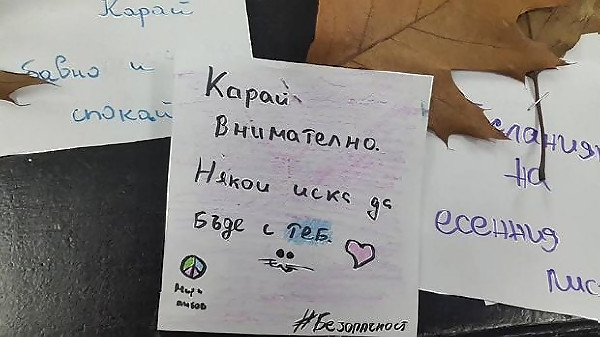 Карай
бавно и
спокай
Карай
Внимателно.
Някои иска да
бъде с теб.
Мир и
любов
#Безопасност
слания
на
есенния
лис